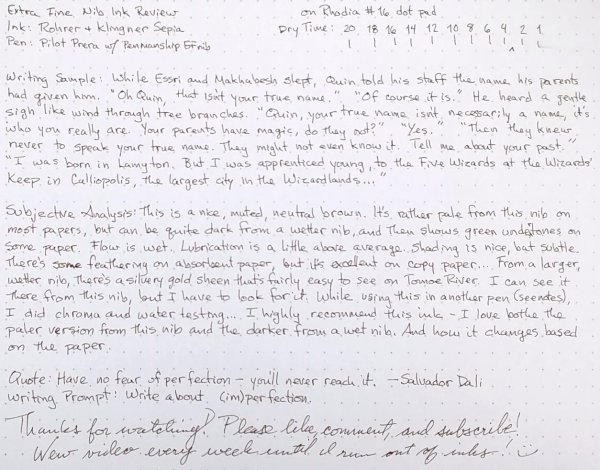 Extra Fine Nib Ink Review on Rhodia #16 dot pad
Ink: Rohrer + Klingner Sepia Dry Time: 20 18 16 14 12 10 8 6 4 2 1
Pen: Pilot Prera w/ Penmanship EF nib
Writing Sample: While Essri and Makhabesh slept, Quin told his staff the name his parents
had given him. "Oh Quin, that isn't your true name." "Of course it is." He heard a gentle
sigh like wind through tree branches. "Quin, your true name isn't necessarily a name, it's
who you really are. Your parents have magic, do they not?" "Yes." "Then they knew
never to speak your true name. They might not even know it. Tell me about your past."
"I was born in Lamyton. But I was apprenticed young, to the Five Wizards at the Wizards'
Keep in Calliopolis, the largest city in the Wizardlands..."
Subjective Analysis: This is a nice, muted, neutral brown. It's rather pale from this nib on
most papers, but can be quite dark from a wetter nib, and then shows green undertones on
some paper. Flow is wet. Lubrication is a little above average. Shading is nice, but subtle.
There's some feathering on absorbent paper, but it's excellent on copy paper... From a larger,
wetter nib, there's a silvery gold sheen that's fairly easy to see on Tomoe River. I can see it
there from this nib, but I have to look for it. While using this in another pen (see notes),
I did chroma and water testing... I highly recommend this ink - I love bothe the
paler version from this nib and the darker from a wet nib. And how it changes based
on the paper.
Quote: Have no fear of perfection - you'll never reach it. -Salvador Dali
Writing Prompt: Write about (im)perfection.
Thanks for watching! Please like, comment, and subscribe!
New video every week until I run out of inks! :)